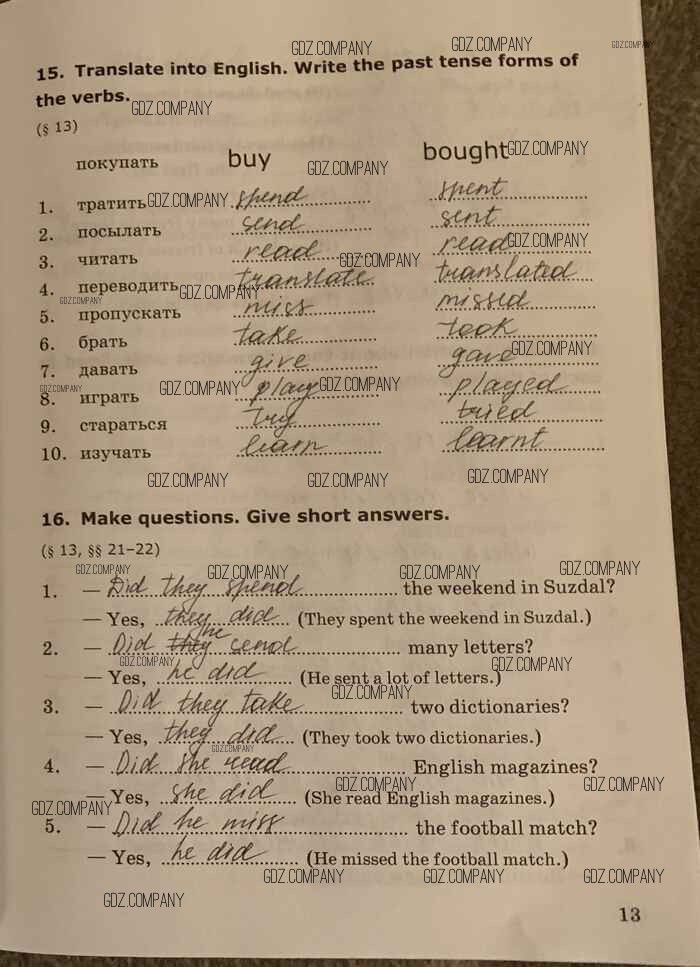 GDZ.COMPANY GDZ.COMPANY GDZ.COMPANY
15. Translate into English. Write the past tense forms of
the verbs. GDZ.COMPANY
(§ 13)
покупать buy GDZ.COMPANY bought GDZ.COMPANY
1. тратить GDZ.COMPANY spend spent
2. посылать send sent
3. читать read GDZ.COMPANY read GDZ.COMPANY
4. переводить GDZ.COMPANY translate translated
GDZ.COMPANY
5. пропускать miss missed
6. брать take took
7. давать give gave GDZ.COMPANY
GDZ.COMPANY
8. играть GDZ.COMPANY play GDZ.COMPANY played
9. стараться try tried
10. изучать learn learnt
GDZ.COMPANY GDZ.COMPANY GDZ.COMPANY
16. Make questions. Give short answers.
(§ 13, §§ 21–22)
GDZ.COMPANY GDZ.COMPANY GDZ.COMPANY GDZ.COMPANY
1. — Did they spend the weekend in Suzdal?
— Yes, they did (They spent the weekend in Suzdal.)
2. — Did they he send many letters?
GDZ.COMPANY GDZ.COMPANY
— Yes, he did (He sent a lot of letters.)
GDZ.COMPANY
3. — Did they take two dictionaries?
— Yes, they did (They took two dictionaries.)
GDZ.COMPANY
4. — Did she read English magazines?
GDZ.COMPANY GDZ.COMPANY
— Yes, she did (She read English magazines.)
GDZ.COMPANY
5. — Did he miss the football match?
— Yes, he did (He missed the football match.)
GDZ.COMPANY GDZ.COMPANY GDZ.COMPANY
GDZ.COMPANY
13